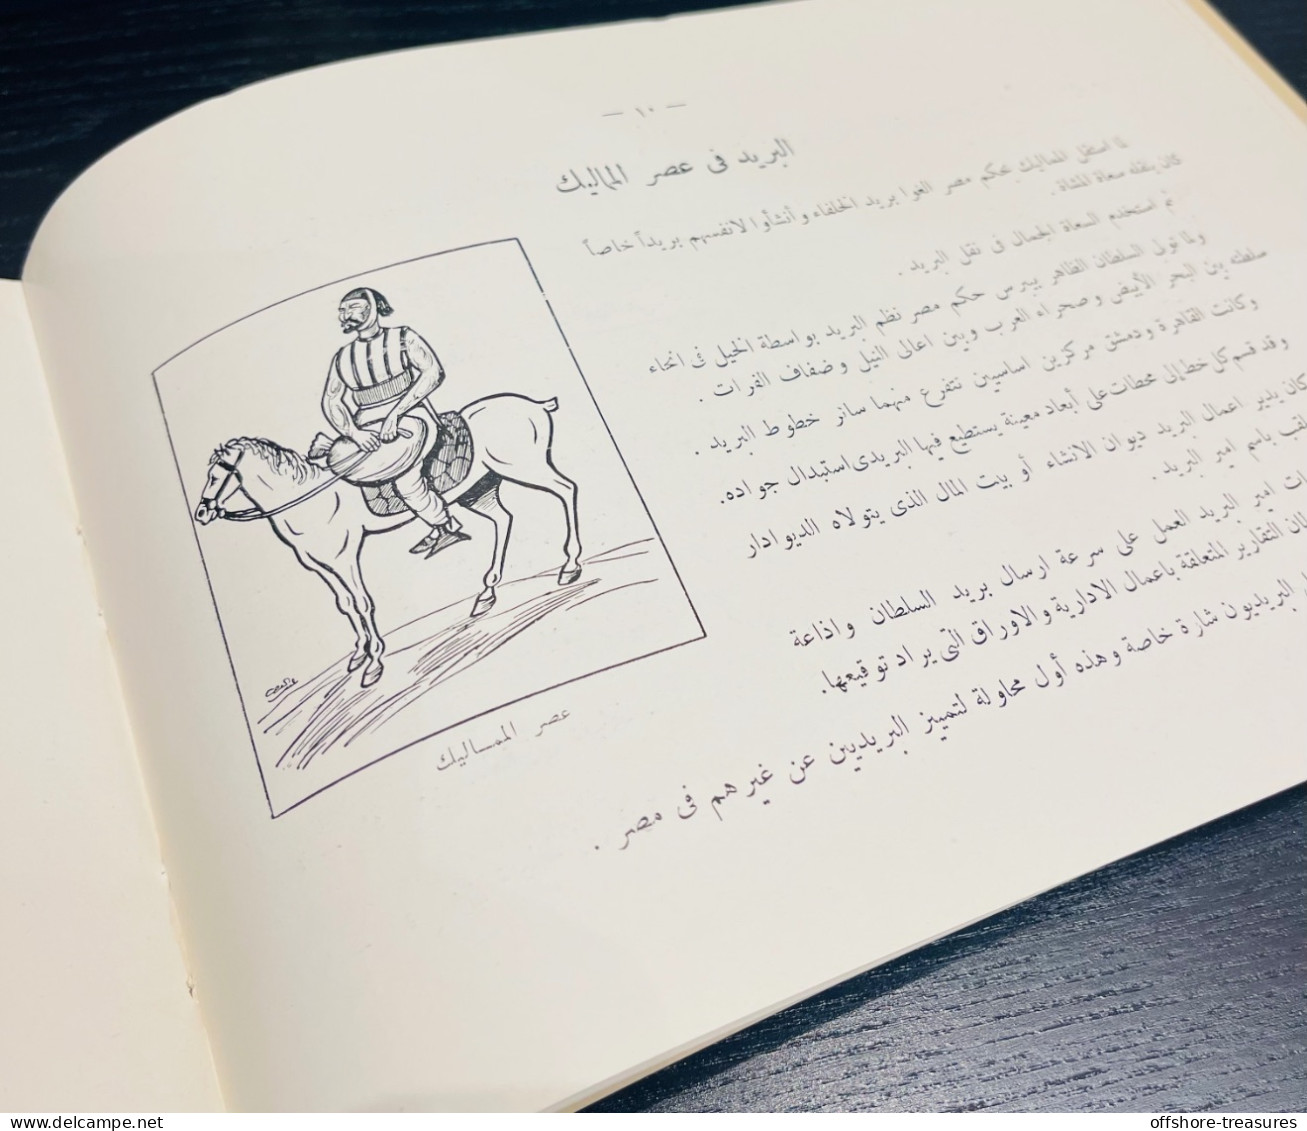 — ١٠ —
البريد فى عصر المماليك
لما استقل المماليك بحكم مصر الغوا بريد الخلفاء وأنشأوا لانفسهم بريداً خاصاً
كان ينقله سعاة المشاة .
ثم استخدم السعاة الجمال فى نقل البريد .
ولما تولى السلطان الظاهر بيبرس حكم مصر نظم البريد بواسطة الخيل فى انحاء
سلطنته بين البحر الأبيض وصحراء العرب وبين اعالى النيل وضفاف الفرات .
وكانت القاهرة ودمشق مركزين اساسيين تتفرع منهما سائر خطوط البريد .
وقد قسم كل خط إلى محطات على أبعاد معينة يستطيع فيها البريدى استبدال جواده .
كان يدير اعمال البريد ديوان الانشاء أو بيت المال الذى يتولاه الديوادار
باسم امير البريد .
امير البريد العمل على سرعة ارسال بريد السلطان واذاعة
التقارير المتعلقة باعمال الادارية والاوراق التى يراد توقيعها .
البريديون شارة خاصة وهذه أول محاولة لتمييز البريديين عن غيرهم فى مصر .
عصر المماليك
offshore-treasures